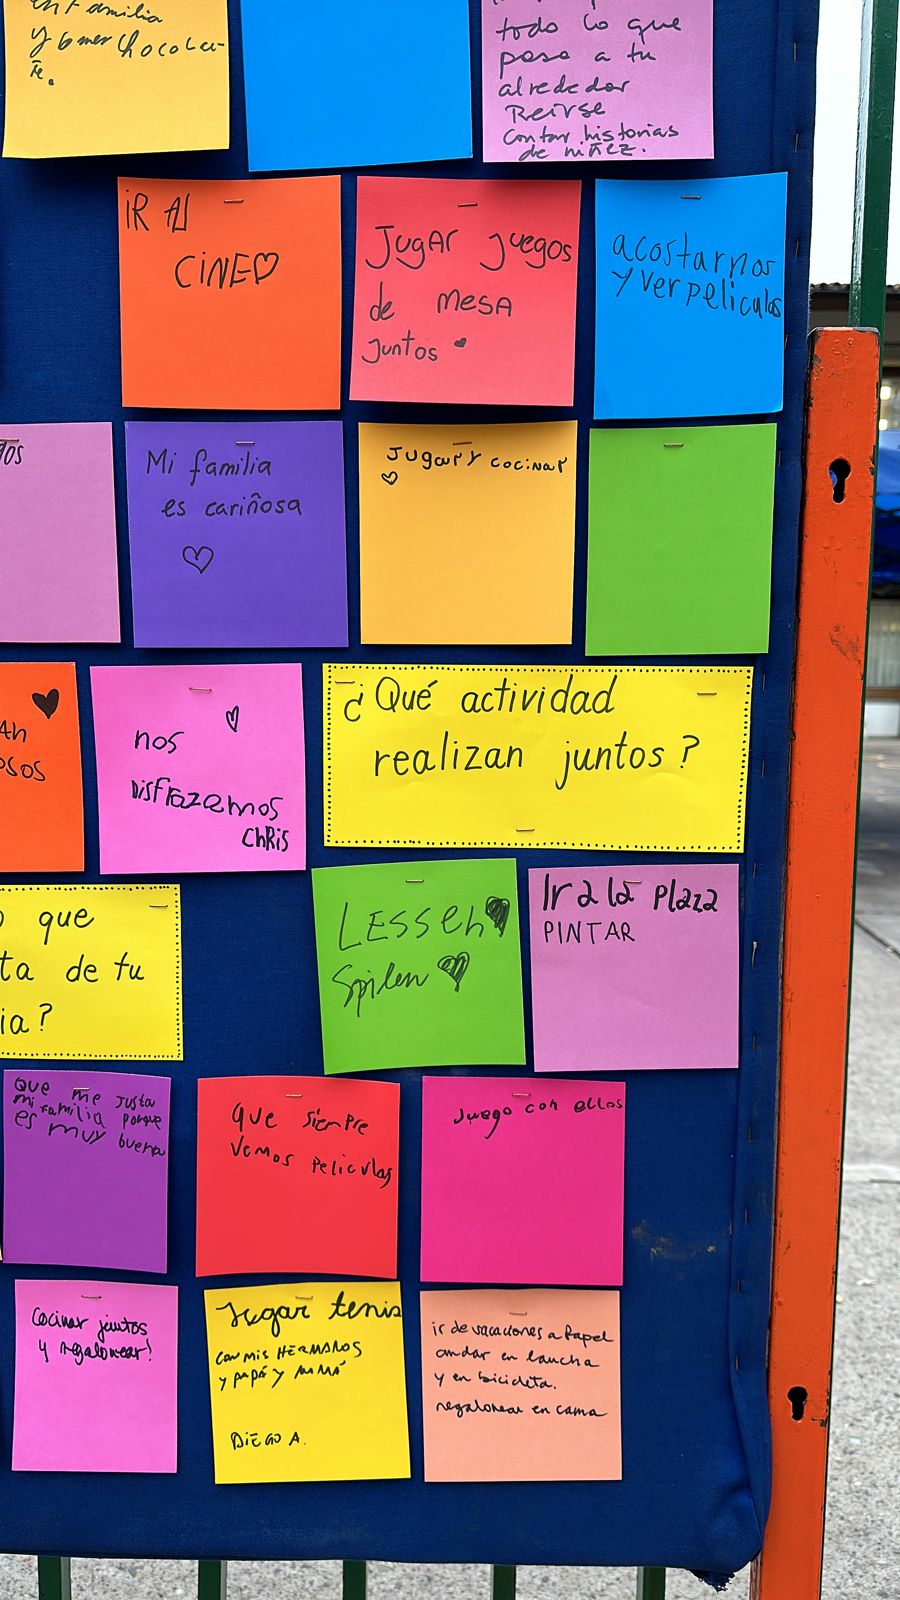 en Familia
y comer chocola-
te.
todo lo que
pasa a tu
alrededor
Reirse
Contar historias
de niñez.
iR AL
CINE
JugAr juegos
de MESA
Juntos
acostarnos
y ver peliculas
Mi familia
es cariñosa
Jugar y cocinar
nos
DisFrazamos
ChRis
¿Qué actividad
realizan juntos?
que
ta de tu
ia?
LESSEN
Spilen
Ir a la Plaza
PINTAR
Que me justa
mi familia porque
es muy buena
que siempre
vemos peliculas
Juego con ellos
Cocinar juntos
y regalonear!
Jugar tenis
con mis HERMANOS
y papá y mamá
DIEGO A.
ir de vacaciones a Rapel
andar en lancha
y en bicicleta.
regalonear en cama